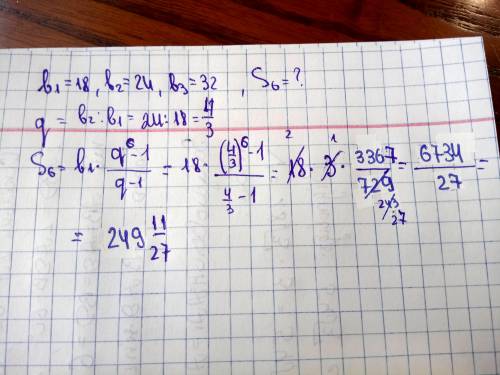 b₁=18, b₂=24, b₃=32, S₆=?
q = b₂:b₁ = 24:18 = 4/3
S₆ = b₁· (q⁶-1)/(q-1) = 18· ((4/3)⁶-1)/(4/3 -1) = 18 2 · 3 1 · 3367/729 243 27 = 6734/27 =
= 249 11/27